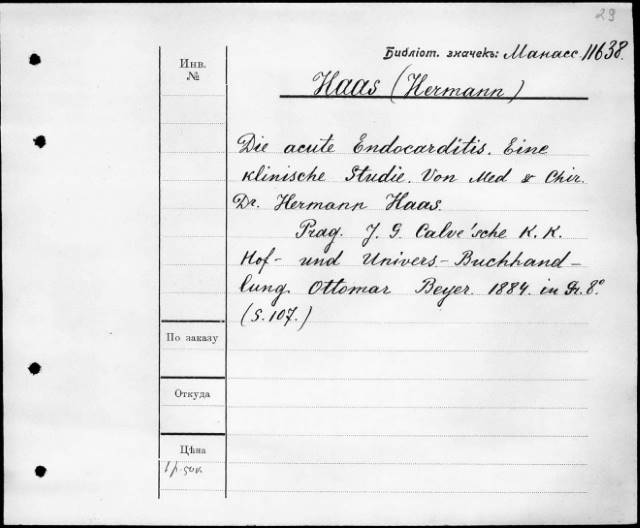 29
Библіот. значекъ: Манасс 11638.
Инв.
№
Haas (Hermann)
Die acute Endocarditis. Eine
klinische Studie. Von Med & Chir.
Dr. Hermann Haas.
Prag. J. G. Calve'sche K. K.
Hof- und Univers-Buchhand-
lung. Ottomar Beyer. 1884. in Gr. 8°
(S. 107.)
По заказу
Откуда
Цѣна
1 р. 50 к.